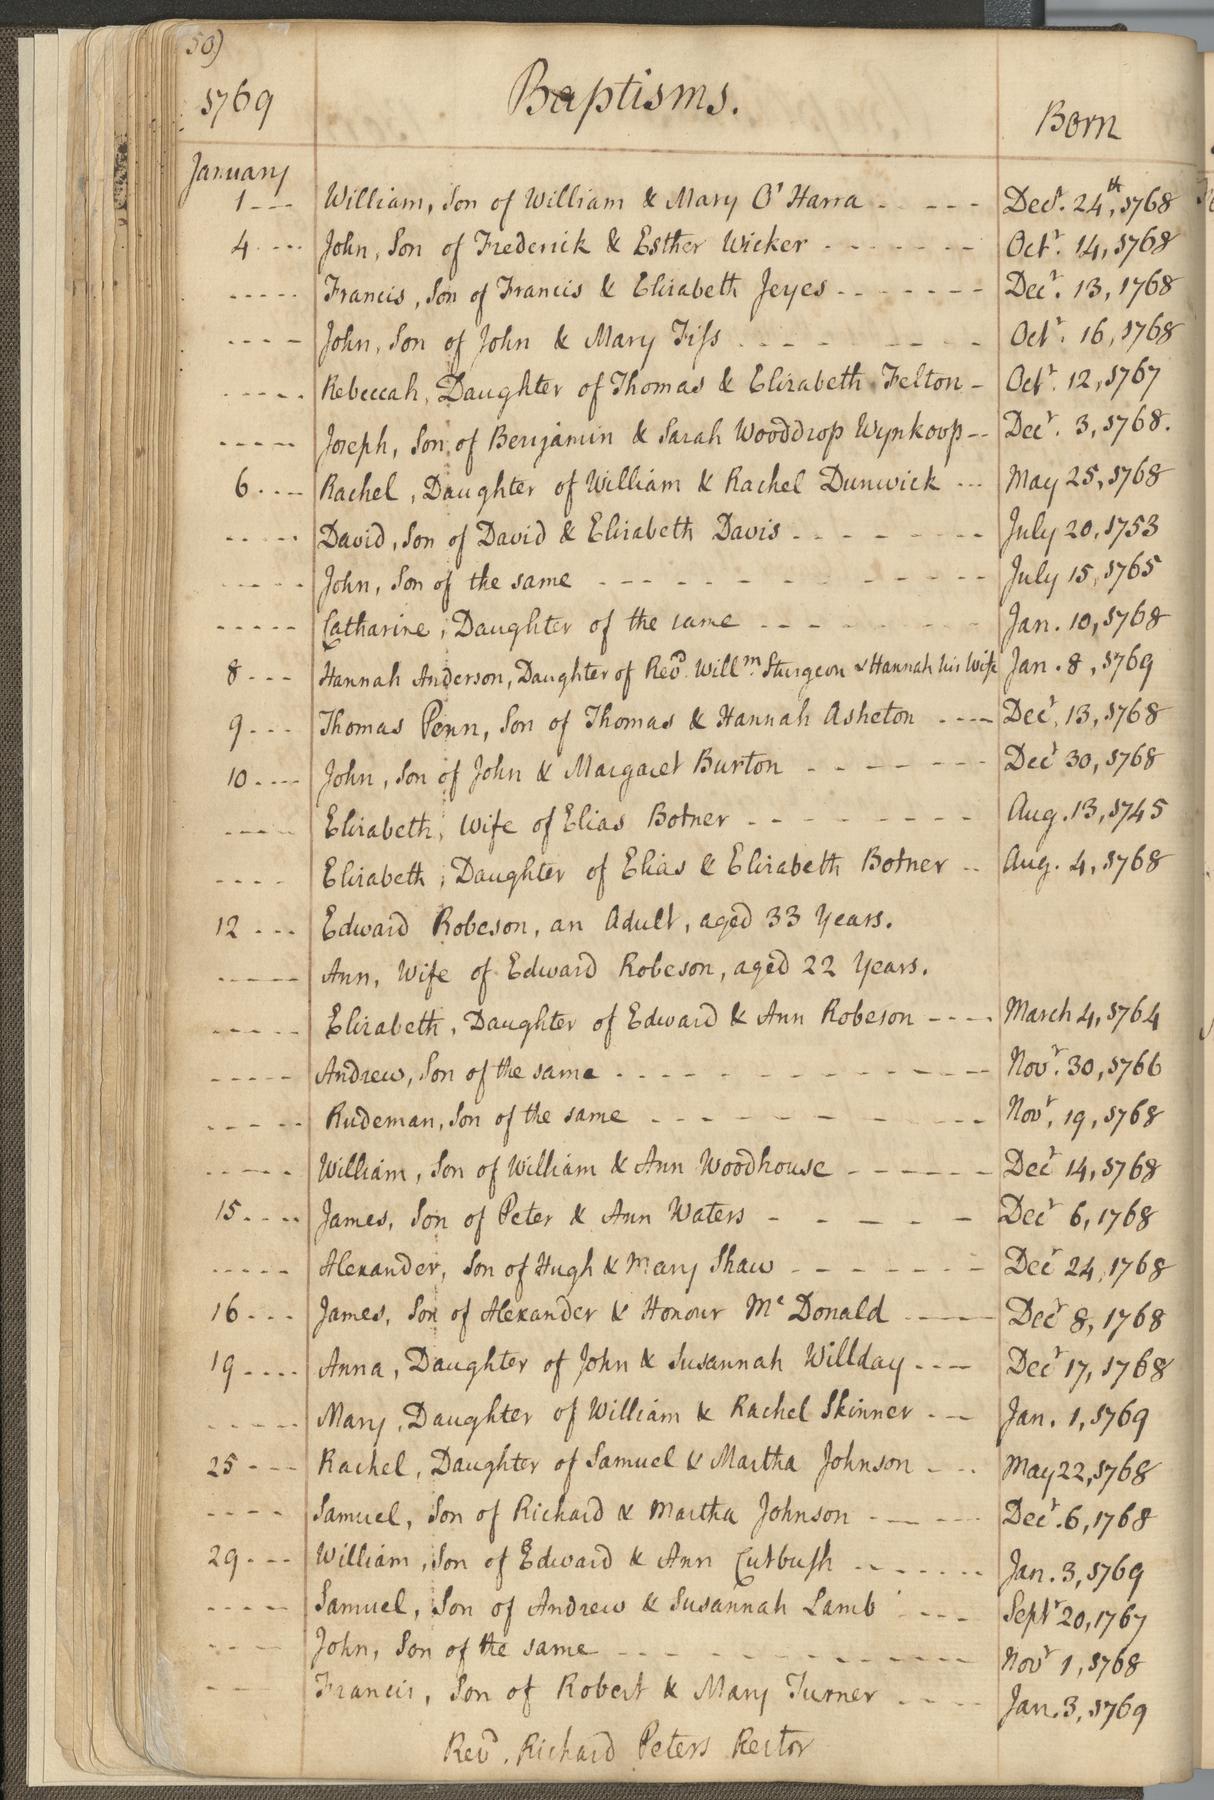 50)
1769 Baptisms. Born
January
1--- William, Son of William & Mary O'Harra - - - - - Decr. 24th, 1768
4---- John, Son of Frederick & Esther Wicker - - - - - - - Octr. 14, 1768
----- Francis, Son of Francis & Elizabeth Jeyes - - - - - - - Decr. 13, 1768
---- John, Son of John & Mary Fiss - - - - - - - - Octr. 16, 1768
----- Rebeccah, Daughter of Thomas & Elizabeth Felton - Octr. 12, 1767
----- Joseph, Son of Benjamin & Sarah Wooddrop Wynkoop -- Decr. 3, 1768.
6---- Rachel, Daughter of William & Rachel Dunwick --- May 25, 1768
----- David, Son of David & Elizabeth Davis - - - - - - - July 20, 1753
----- John, Son of the same - - - - - - - - - - - July 15, 1765
----- Catharine, Daughter of the same - - - - - - - Jan. 10, 1768
8--- Hannah Anderson, Daughter of Revd. Willm. Sturgeon & Hannah his Wife Jan. 8, 1769
9--- Thomas Penn, Son of Thomas & Hannah Asheton ---- Decr. 13, 1768
10---- John, Son of John & Margaret Burton - - - - - - - Decr 30, 1768
---- Elizabeth, Wife of Elias Botner - - - - - - - - - Aug. 13, 1745
---- Elizabeth, Daughter of Elias & Elizabeth Botner -- Aug. 4, 1768
12--- Edward Robeson, an Adult, aged 33 Years.
----- Ann, Wife of Edward Robeson, aged 22 Years.
----- Elizabeth, Daughter of Edward & Ann Robeson ---- March 4, 1764
----- Andrew, Son of the same - - - - - - - - - - - - - Novr. 30, 1766
----- Rudeman, Son of the same - - - - - - - - - - Novr. 19, 1768
----- William, Son of William & Ann Woodhouse - - - - - - Decr 14, 1768
15---- James, Son of Peter & Ann Waters - - - - - - Decr 6, 1768
----- Alexander, Son of Hugh & Mary Shaw - - - - - - - Decr 24, 1768
16--- James, Son of Alexander & Honour Mc Donald ---- Decr 8, 1768
19---- Anna, Daughter of John & Susannah Willday ---- Decr 17, 1768
----- Mary, Daughter of William & Rachel Skinner --- Jan. 1, 1769
25--- Rachel, Daughter of Samuel & Martha Johnson --- May 22, 1768
---- Samuel, Son of Richard & Martha Johnson - - - - - Decr. 6, 1768
29--- William, Son of Edward & Ann Cutbush - - - - - - - Jan. 3, 1769
---- Samuel, Son of Andrew & Susannah Lamb - - - - Septr 20, 1767
---- John, Son of the same - - - - - - - - - - - - Novr 1, 1768
--- Francis, Son of Robert & Mary Turner - - - - Jan. 3, 1769
Revd. Richard Peters Rector